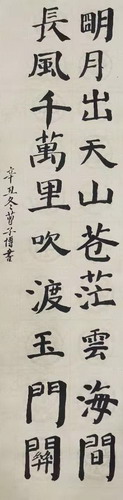 明月出天山蒼茫雲海間
長風千萬里吹渡玉門關
辛丑冬書